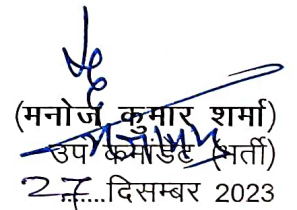 (मनोज कुमार शर्मा)
उप कमांडेंट (भर्ती)
27.....दिसम्बर 2023